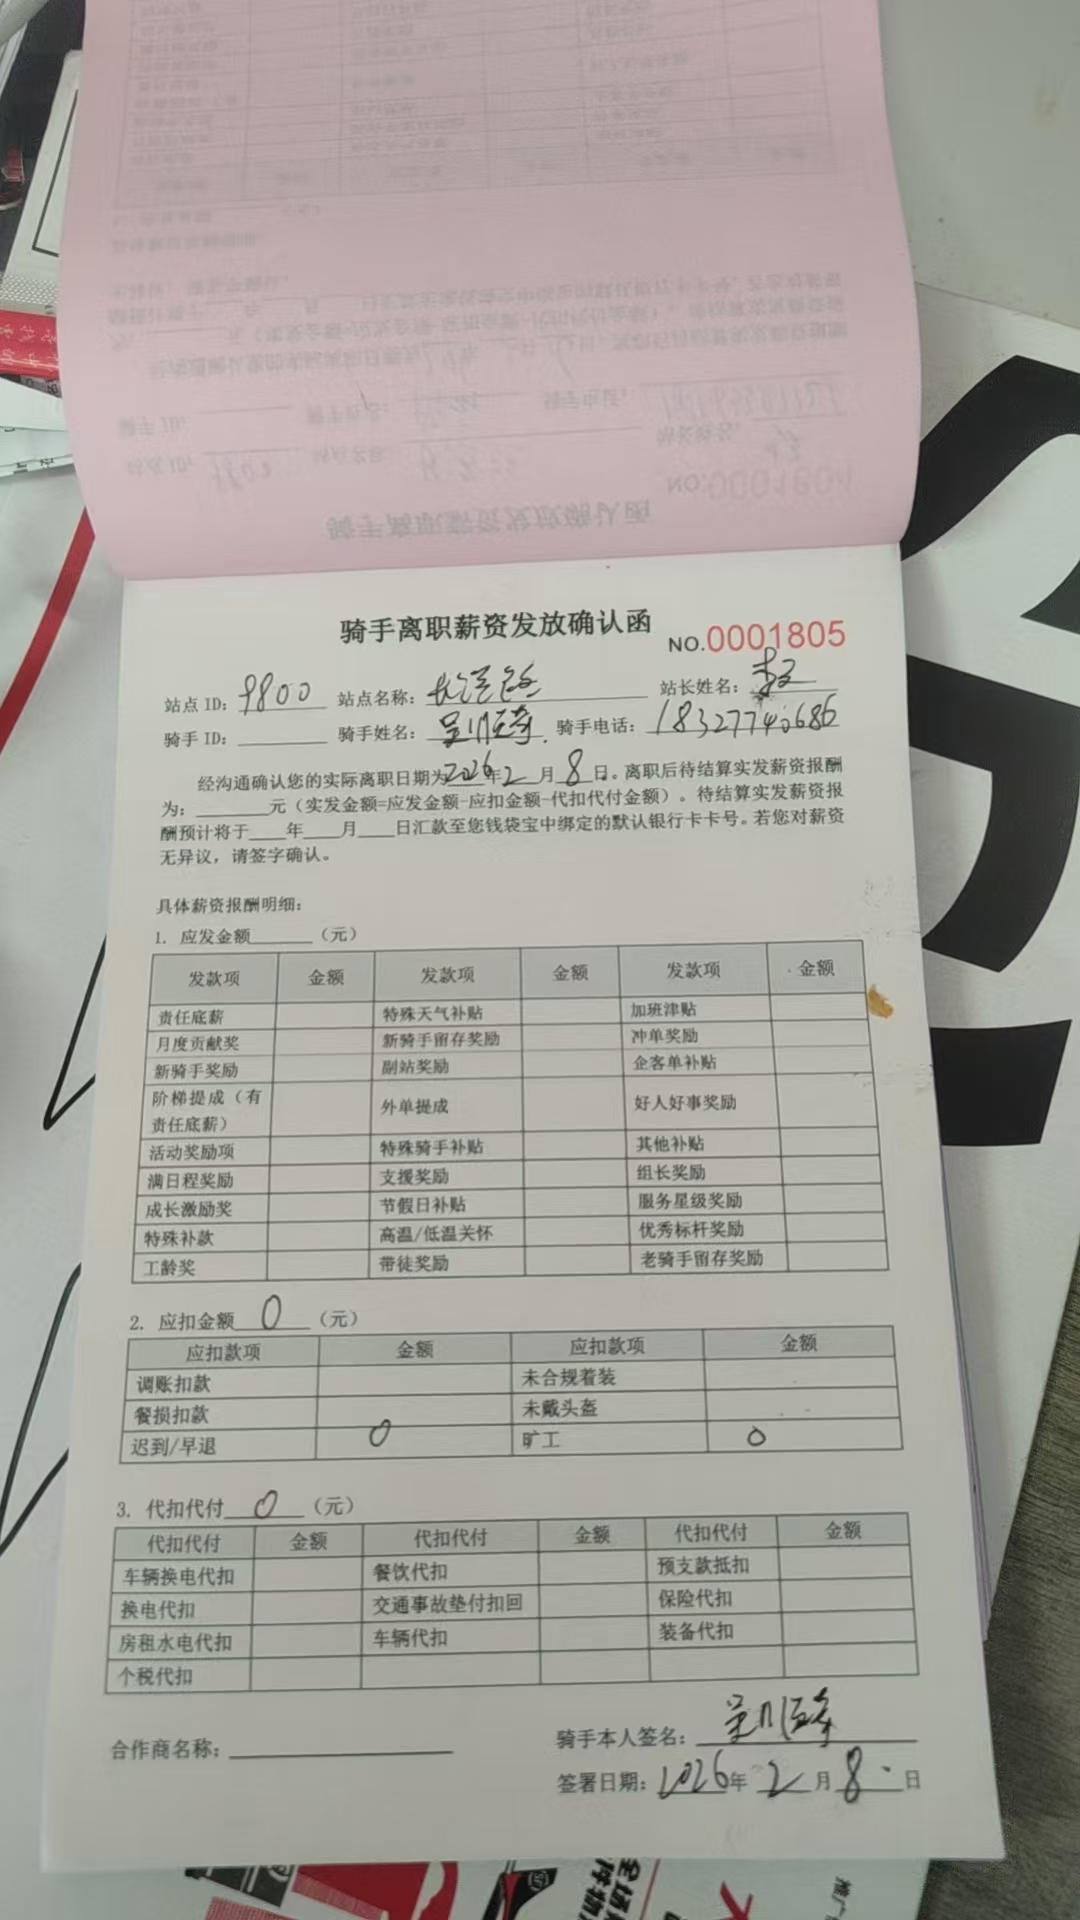 骑手离职薪资发放确认函
NO.0001805
站点 ID: 9800 站点名称: 站长姓名:
骑手 ID: 骑手姓名: 骑手电话: 18327740686
经沟通确认您的实际离职日期为2026年2月8日。离职后待结算实发薪资报酬
为:______元(实发金额=应发金额-应扣金额-代扣代付金额)。待结算实发薪资报
酬预计将于___年___月___日汇款至您钱袋宝中绑定的默认银行卡卡号。若您对薪资
无异议,请签字确认。
具体薪资报酬明细:
1. 应发金额______(元)
发款项 金额 发款项 金额 发款项 金额
责任底薪 特殊天气补贴 加班津贴
月度贡献奖 新骑手留存奖励 冲单奖励
新骑手奖励 副站奖励 企客单补贴
阶梯提成(有
责任底薪) 外单提成 好人好事奖励
活动奖励项 特殊骑手补贴 其他补贴
满日程奖励 支援奖励 组长奖励
成长激励奖 节假日补贴 服务星级奖励
特殊补款 高温/低温关怀 优秀标杆奖励
工龄奖 带徒奖励 老骑手留存奖励
2. 应扣金额 0 (元)
应扣款项 金额 应扣款项 金额
调账扣款 未合规着装
餐损扣款 未戴头盔
迟到/早退 0 旷工 0
3. 代扣代付 0 (元)
代扣代付 金额 代扣代付 金额 代扣代付 金额
车辆换电代扣 餐饮代扣 预支款抵扣
换电代扣 交通事故垫付扣回 保险代扣
房租水电代扣 车辆代扣 装备代扣
个税代扣
合作商名称: 骑手本人签名:
签署日期: 2026年 2月 8日